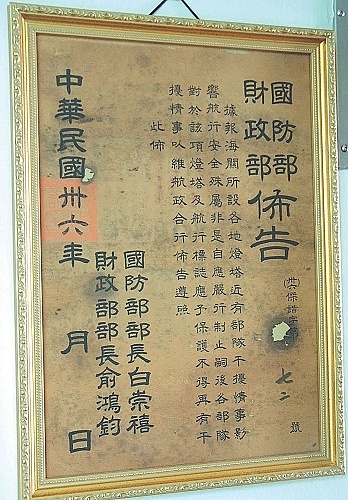 國防部
財政部
佈告
保譜字第
七二
號
據報海關所設各地燈塔近有部隊干擾情事影
響航行安全殊屬非是自應嚴行制止嗣後各部隊
對於該項燈塔及航行標誌應予保護不得再有干
擾情事以維航政合行佈告遵照
此佈
國防部部長白崇禧
財政部部長俞鴻鈞
中華民國卅六年 月 日